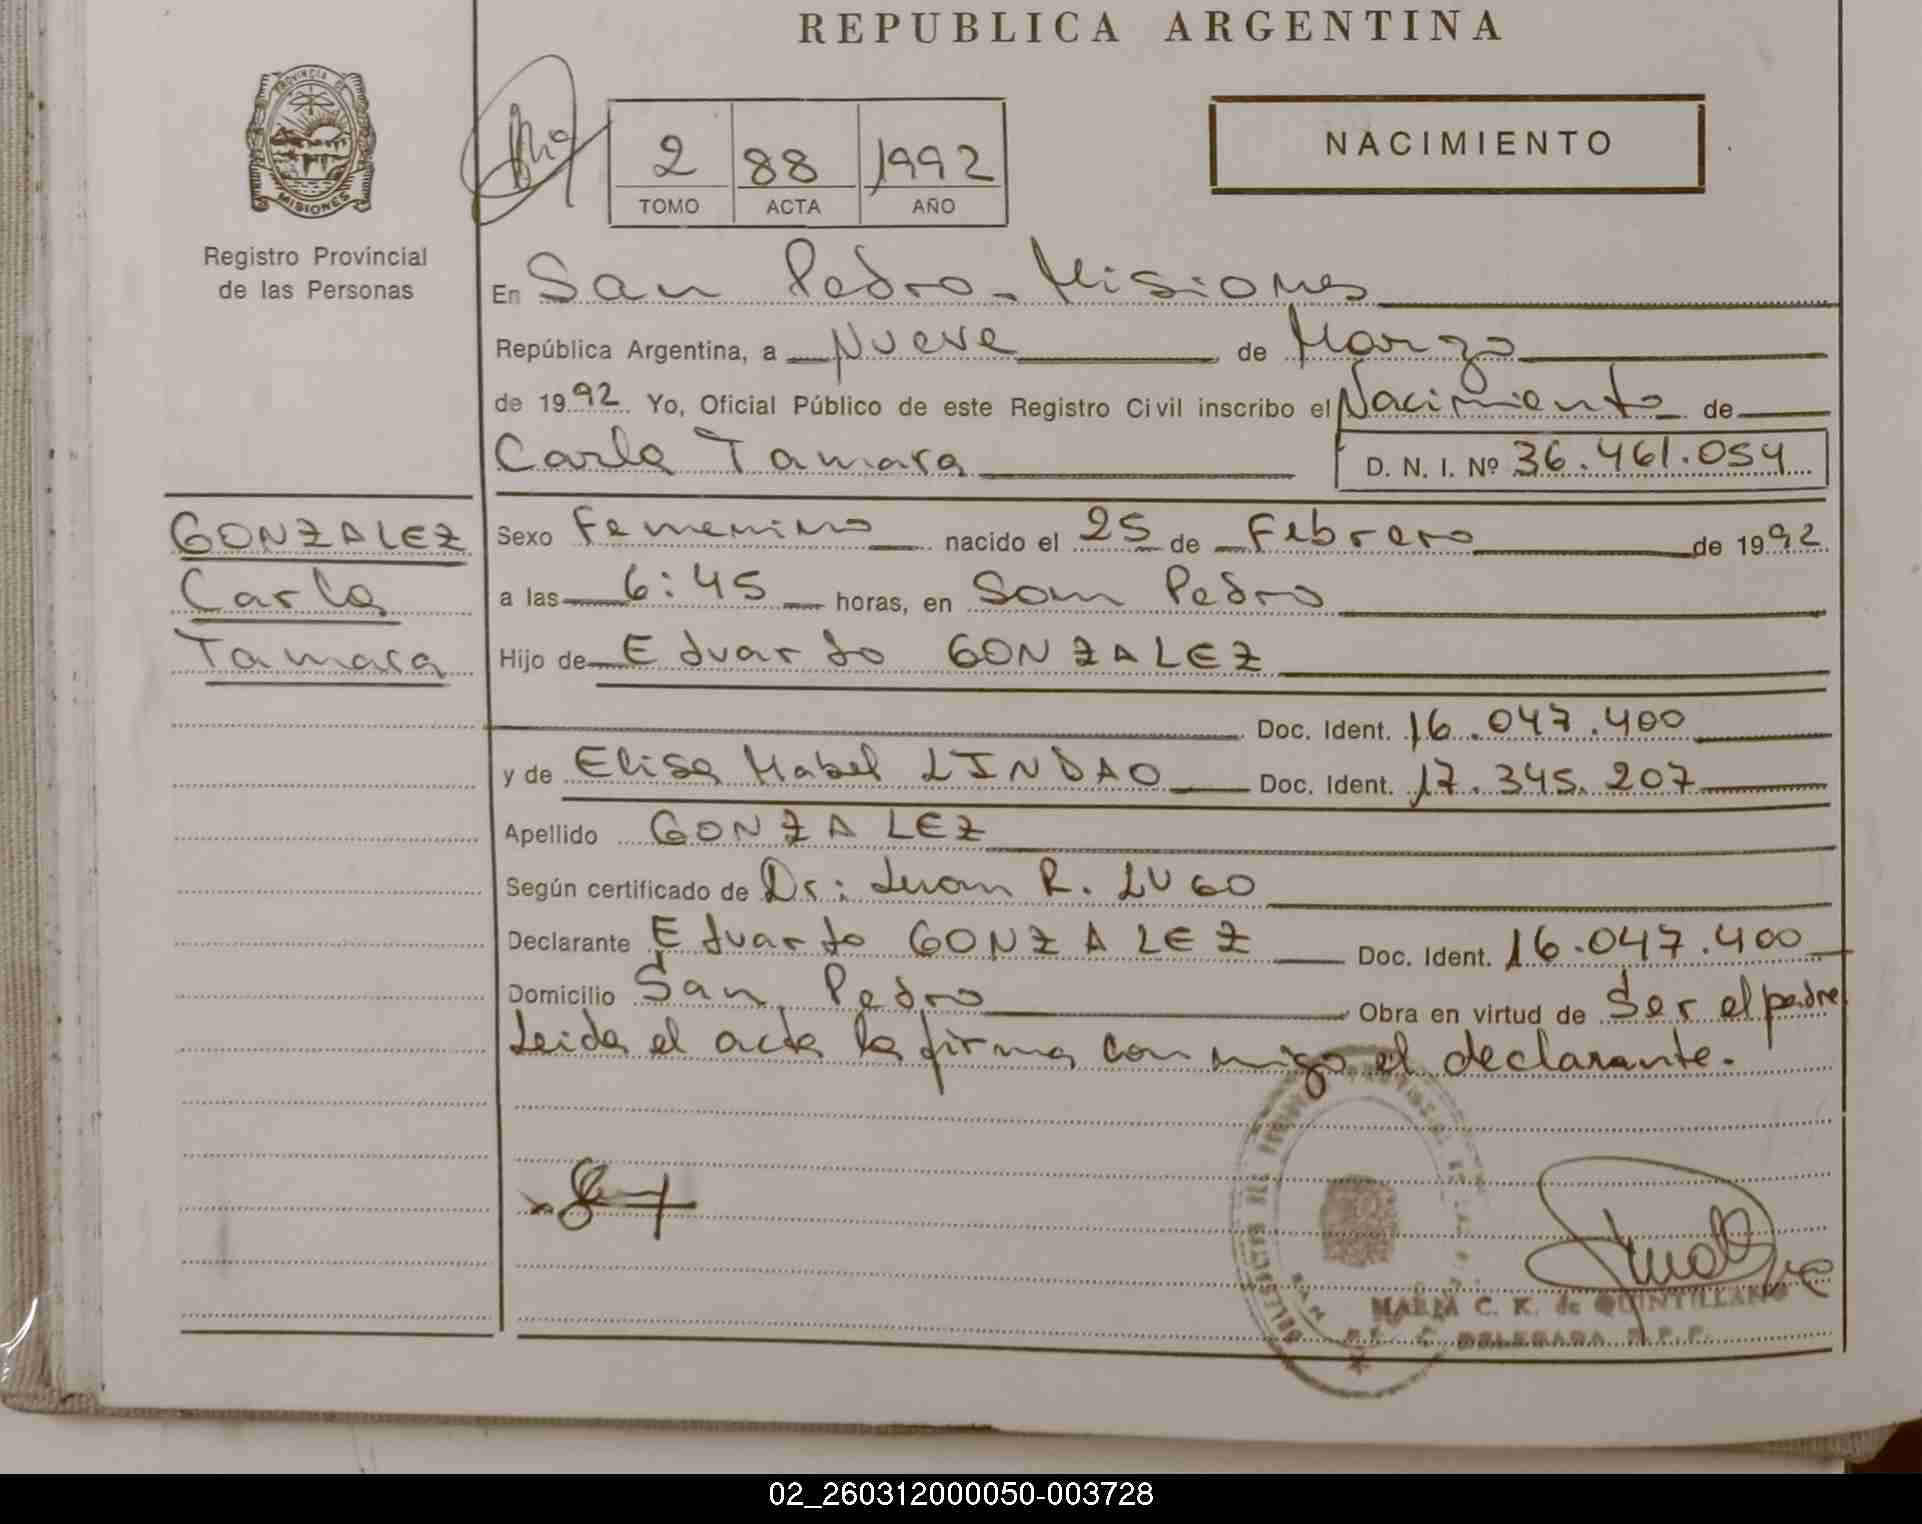 REPUBLICA ARGENTINA
PROVINCIA DE
MISIONES
Registro Provincial
de las Personas
2 88 1992
TOMO ACTA AÑO
NACIMIENTO
En San Pedro - Misiones
República Argentina, a Nueve de Marzo
de 1992 Yo, Oficial Público de este Registro Civil inscribo el Nacimiento de
Carla Tamara D. N. I. Nº 36.461.054
GONZALEZ
Carla
Tamara
Sexo Femenino nacido el 25 de Febrero de 1992
a las 6:45 horas, en San Pedro
Hijo de Eduardo GONZALEZ
Doc. Ident. 16.047.400
y de Elisa Mabel LINDAO Doc. Ident. 17.345.207
Apellido GONZALEZ
Según certificado de Dr: Juan R. LUGO
Declarante Eduardo GONZALEZ Doc. Ident. 16.047.400
Domicilio San Pedro Obra en virtud de Ser el padre
Leida el acta la firma conmigo el declarante.
MARIA C. K. de QUINTILLANO
DELEGADA R.P.P.
02_260312000050-003728